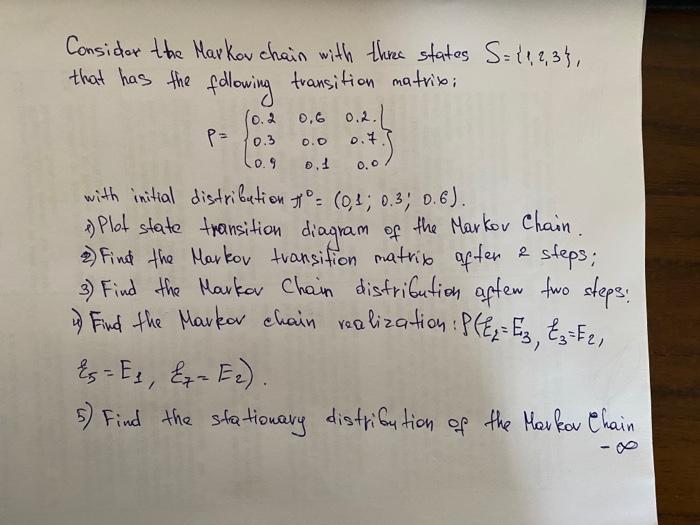 Consider the Markov chain with three states S={1,2,3},
that has the following transition matrix;
0.2 0,6 0.2.
P= 0.3 0.0 0.7.
0.9 0,1 0.0
with initial distribution π⁰= (0,1; 0.3; 0.6).
1) Plot state transition diagram of the Markov Chain.
2) Find the Markov transition matrix after 2 steps;
3) Find the Markov Chain distribution aftew two steps:
4) Find the Markov chain realization: P(ξ₂=E₃, ξ₃=E₂,
ξ₅=E₁, ξ₇=E₂).
5) Find the stationary distribution of the Markov Chain
-∞